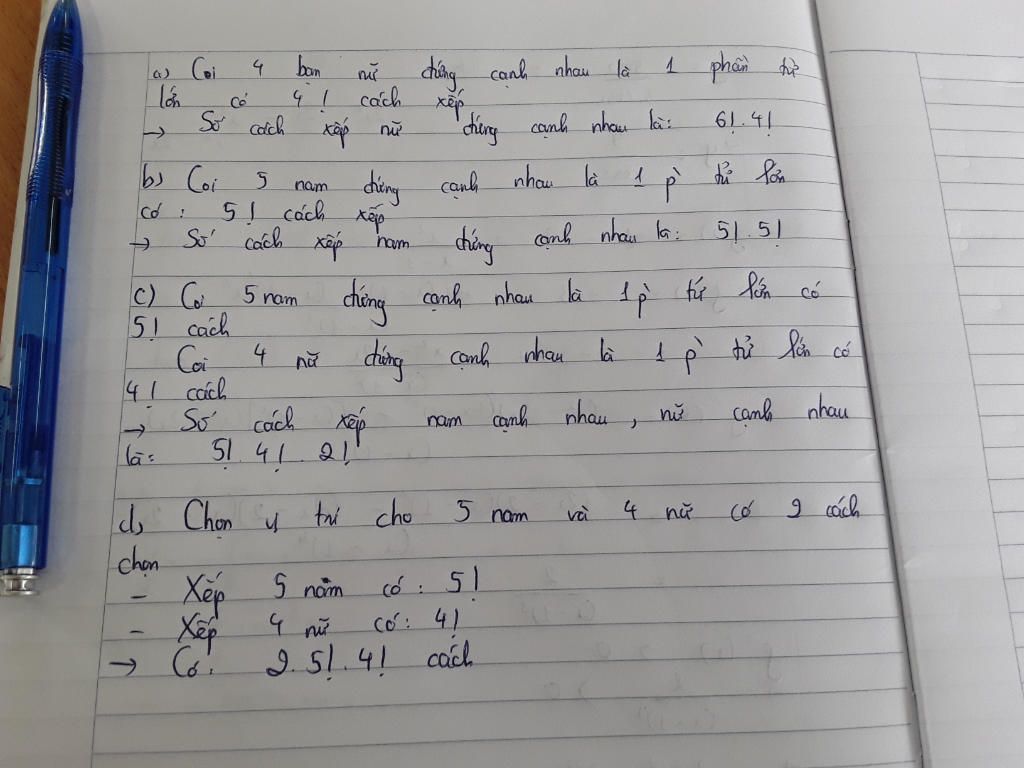 a) Coi 4 bạn nữ đứng cạnh nhau là 1 phần tử
lớn có 4! cách xếp
→ Số cách xếp nữ đứng cạnh nhau là: 6!.4!
b) Coi 5 nam đứng cạnh nhau là 1 p` tử lớn
có: 5! cách xếp
→ Số cách xếp nam đứng cạnh nhau là: 5!.5!
c) Coi 5 nam đứng cạnh nhau là 1 p` tử lớn có
5! cách
Coi 4 nữ đứng cạnh nhau là 1 p` tử lớn có
4! cách
→ Số cách xếp nam cạnh nhau, nữ cạnh nhau
là: 5!.4!.2!
d) Chọn vị trí cho 5 nam và 4 nữ có 2 cách
chọn
- Xếp 5 nam có: 5!
- Xếp 4 nữ có: 4!
→ Có: 2.5!.4! cách